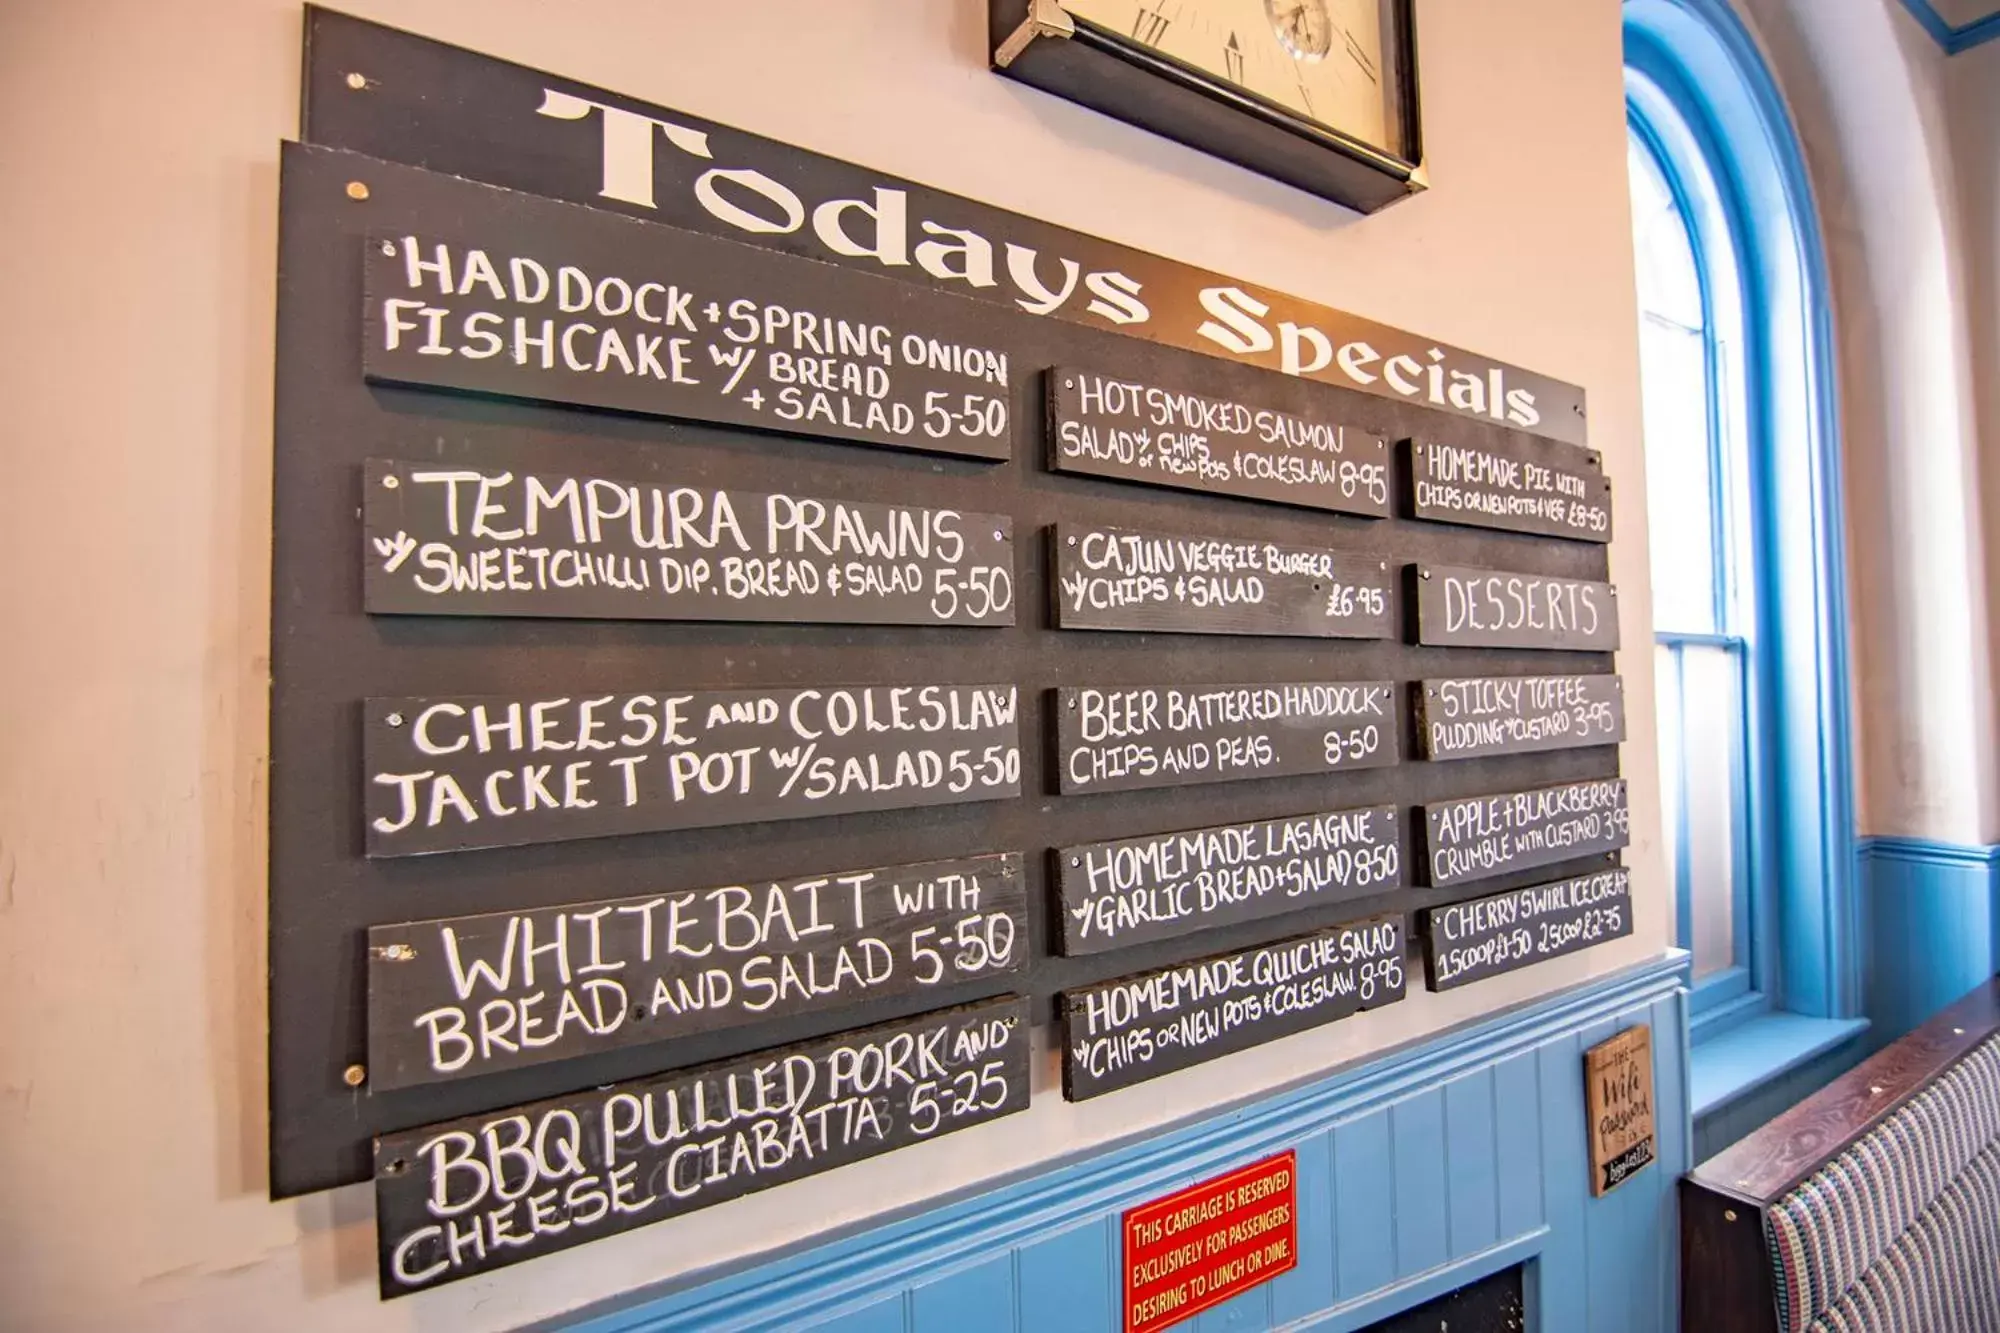 VII
VI
Todays Specials
HADDOCK + SPRING ONION
FISHCAKE W/ BREAD
+ SALAD 5-50
TEMPURA PRAWNS
W/ SWEETCHILLI DIP. BREAD & SALAD 5-50
CHEESE AND COLESLAW
JACKET POT W/ SALAD 5-50
WHITEBAIT WITH
BREAD AND SALAD 5-50
BBQ PULLED PORK AND
CHEESE CIABATTA 5-25
HOT SMOKED SALMON
SALAD W/ CHIPS
or new pots & COLESLAW 8-95
CAJUN VEGGIE BURGER
W/ CHIPS & SALAD £6.95
BEER BATTERED HADDOCK
CHIPS AND PEAS. 8-50
HOMEMADE LASAGNE
W/ GARLIC BREAD + SALAD 8-50
HOMEMADE QUICHE SALAD
W/ CHIPS OR NEW POTS & COLESLAW. 8-95
HOMEMADE PIE WITH
CHIPS OR NEW POTS & VEG £8-50
DESSERTS
STICKY TOFFEE
PUDDING W/ CUSTARD 3-95
APPLE + BLACKBERRY
CRUMBLE WITH CUSTARD 3-95
CHERRY SWIRL ICE CREAM
1 SCOOP £1-50 2 SCOOP £2-75
THE
Wifi
Password
is
THIS CARRIAGE IS RESERVED
EXCLUSIVELY FOR PASSENGERS
DESIRING TO LUNCH OR DINE.